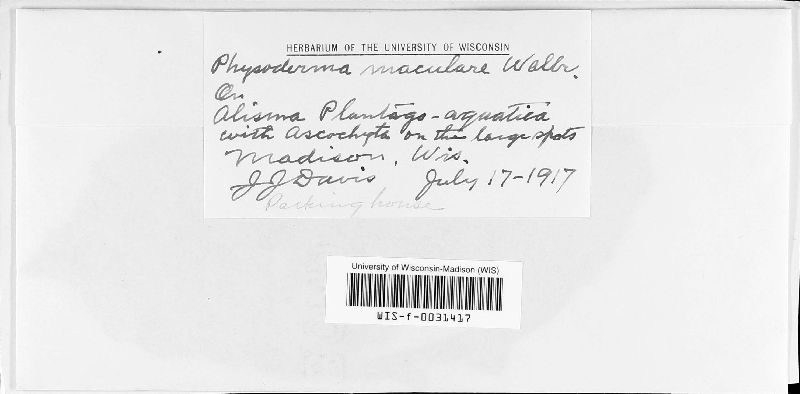 HERBARIUM OF THE UNIVERSITY OF WISCONSIN
Physoderma maculare Wallr.
On
Alisma Plantago-aquatica
with Ascochyta on the large spots
Madison, Wis.
JJ Davis July 17-1917
Packing house
University of Wisconsin-Madison (WIS)
WIS-f-0031417